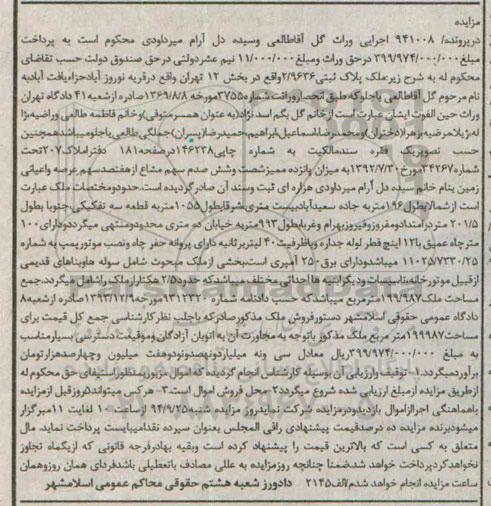 مزایده
درپرونده/ ۹۴۱۰۰۸ اجرایی وراث گل آقاطالعی وسیده دل آرام میرداودی محکوم است به پرداخت
مبلغ۳۹۹/۹۷۴/۰۰۰/۰۰۰ درحق وراث ومبلغ۱۱/۰۰۰/۰۰۰ نیم عشردولتی درحق صندوق دولت حسب تقاضای
محکوم له به شرح زیر:ملک پلاک ثبتی۲/۹۶۳۶واقع در بخش ۱۲ تهران واقع درقریه نوروز آبادحزاءیافت آبادبه
نام مرحوم گل آقاطالعی یاجلوکه طبق انحصاروراثت شماره۳۷۵۵مورخه ۱۳۶۹/۸/۸صادره ازشعبه۴۱ دادگاه تهران
وراث حین الفوت ایشان عبارت است ازخانم گل بگم اسدنژاد(به عنوان همسرمتوفی)وخانم فاطمه طالعی وراضیه(ژا
له)ژیلا،مرضیه،زهرا(دختران)ومحمدرضا،اسماعیل،ابراهیم،حمیدرضا(پسران)جملگی طالعی یاجلومیباشدهمچنین
حسب تصویریک فقره سندمالکیت به شماره چاپی۱۴۶۲۳۸درصفحه۱۸۱ دفتراملاک۲۰۷تحت
شماره۳۴۲۶۷مورخ۱۳۹۲/۷/۳۰به میزان پانزده ممیزشصت وشش صدم سهم مشاع ازهفتصدسهم عرصه واعیانی
زمین بنام خانم سیده دل آرام میرداودی هزاره ای ثبت وسند آن صادرگردیده است.حدودومختصات ملک عبارت
است ازشمالابطول۱۹۶متربه جاده سعیدآبادبیست متری،شرقابطول۱۰۵۵متربه قطعه سه تفکیکی،جنوبا بطول
۲۰۱/۵ متردرامتدادومفروزفیروزبهرام وغربابطول۹۹۳متربه خیابان ده متری محدودومنتهی میگرددودارای۱۰۰
مترچاه عمیق با۱۲ اینچ قطر لوله جداره وباظرفیت۴۰ لیتربرثانیه دارای پروانه حفر چاه ونصب موتورپمپ به شماره
۱۱۰۲۵/۷۳۳۰/۲۵ میباشدودارای برق۲۵۰ آمپری است،بخشی ازملک مبحوث شامل سوله هاوبناهای قدیمی
ازقبیل موتورخانه،تاسیسات ودیگرابنیه هااحداثی مختلف میباشدکه حدود۲/۵هکتارازملک راشامل میگردد،جمع
مساحت ملک۱۹۹/۹۸۷مترمربع میباشدکه حسب دادنامه شماره ۹۳۱۲۳۲۰مورخه۱۳۹۳/۱۲/۹صادره ازشعبه۸
دادگاه عمومی حقوقی اسلامشهر دستورفروش ملک مذکورصادرکه باجلب نظرکارشناسی جمع کل قیمت برای
مساحت۱۹۹۹۸۷متر مربع ملک مذکور باتوجه به مجاورت آن به اتوبان آزادگان وموقعیت دسترسی بسیارمناسب
به مبلغ ۳۹۹/۹۷۴/۰۰۰/۰۰۰ریال معادل سی ونه میلیاردونهصدونودوهفت میلیون وچهارصدهزارتومان
برآوردمیگردد.۱- توقیف وارزیابی آن بوسیله کارشناس انجام گردیده که اموال مزبوربمنظوراستیفای حق محکوم له
ازطریق مزایده ازمبلغ ارزیابی شده شروع میگردد۲-محل فروش اموال است.۳- هرکس میتواند۵روزقبل ازمزایده
باهماهنگی اجراازاموال بازدیدودرمزایده شرکت نمایدروز مزایده شنبه۹۴/۹/۲۵ ازساعت۱۰ لغایت ۱۱میرگزار
میشودبرنده مزایده ده درصدقیمت پیشنهادی رافی المجلس بعنوان سپرده نقدامیبایست پرداخت نماید، مال
متعلق به کسی است که بالاترین قیمت را پیشنهاد کرده است وبقیه بهادرفرجه قانونی که ازیکماه تجاوز
نخواهدکردپرداخت خواهد شد.ضمنا چنانچه روزمزایده به عللی مصادف باتعطیلی باشدفردای همان روزوهمان
ساعت مزایده انجام خواهد شدم/الف۲۱۴۵ دادورز شعبه هشتم حقوقی محاکم عمومی اسلامشهر